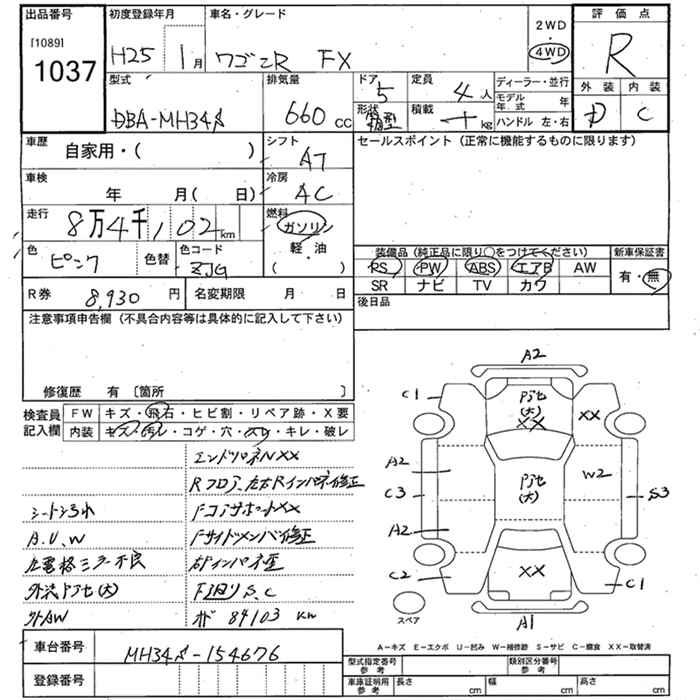 出品番号 初度登録年月 車名・グレード 2WD 評価点
[1089] 1037 H25年 1月 ワゴンR FX 4WD R
型式 排気量 ドア 5 定員 4人 ディーラー・並行 外装 内装
DBA-MH34S 660cc 形状 箱型 積載 kg モデル年式 年 D C
ハンドル 左・右
車歴 自家用・( ) シフト AT セールスポイント (正常に機能するものに限ります)
車検 年 月( 日) 冷房 AC
走行 8万4千102km 燃料 ガソリン
軽・油
( )
色 ピンク 色替 色コード ZJG 装備品 (純正品に限り○をつけてください) 新車保証書
PS PW ABS エアB AW 有・無
R券 8,930円 名変期限 月 日 SR ナビ TV カワ
注意事項申告欄 (不具合内容等は具体的に記入して下さい) 後日品
修復歴 有 〔箇所 〕
検査員 FW キズ・飛石・ヒビ割・リペア跡・X要
記入欄 内装 キズ・汚レ・コゲ・穴・スレ・キレ・破レ
エンドパネルXX
Rフロア、左右Rインパネ修正
シートシミ汚れ FコアサポートXX
A.U.W Fサイドメンバ修正
左電格ミラー不良 右Fインパネ歪
外装PJセ(大) F下回りS.C
外AW オド 84103 km
A2
C1 PJセ(大) XX XX
A2 C3 PJセ(大) W2 S3
A2
C2 XX C1
スペア A1
A-キズ E-エクボ U-凹み W-補修跡 S-サビ C-腐食 XX-取替済
車台番号 MH34S-154676
登録番号
型式指定番号 参考 類別区分番号 参考
車庫証明用 参考 長さ cm 幅 cm 高さ cm